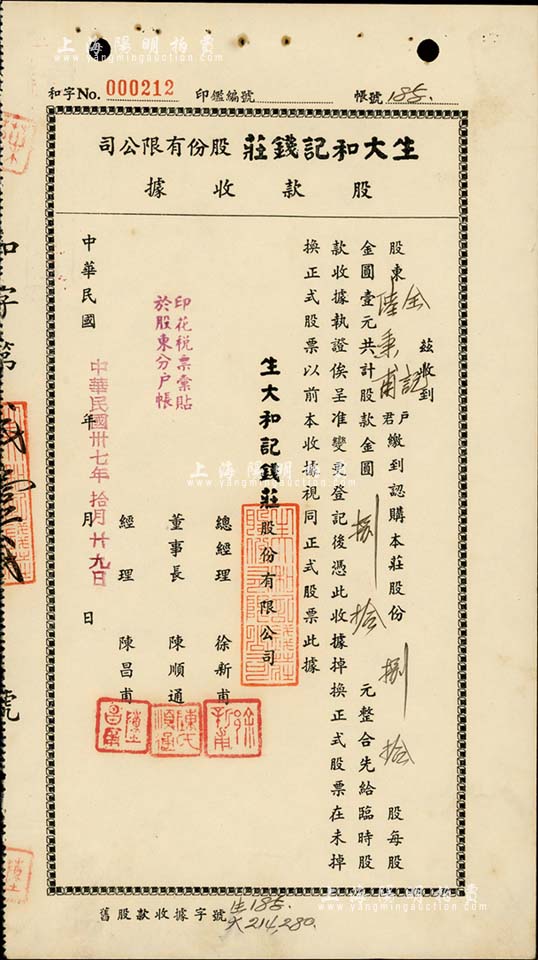 上海陽明拍賣
www.yangmingauction.com
和字No. 000212 印鑑編號 帳號 185.
生大和記錢莊股份有限公司
股款收據
茲收到
股東 金記戶 陸秉甫君 繳到認購本莊股份 捌拾 股每股
金圓壹元共計股款金圓 捌拾 元整合先給臨時股
款收據執證俟呈准變更登記後憑此收據掉換正式股票在未掉
換正式股票以前本收據視同正式股票此據
生大和記錢莊股份有限公司
總經理 徐新甫
董事長 陳順通
經理 陳昌甫
印花稅票彙貼
於股東分戶帳
中華民國 年 月 日
中華民國卅七年拾月廿九日
和字第 貳壹貳 號
上海陽明拍賣
www.yangmingauction.com
舊股款收據字號 生185. 大214,280.
上海陽明拍賣
www.yangmingauction.com